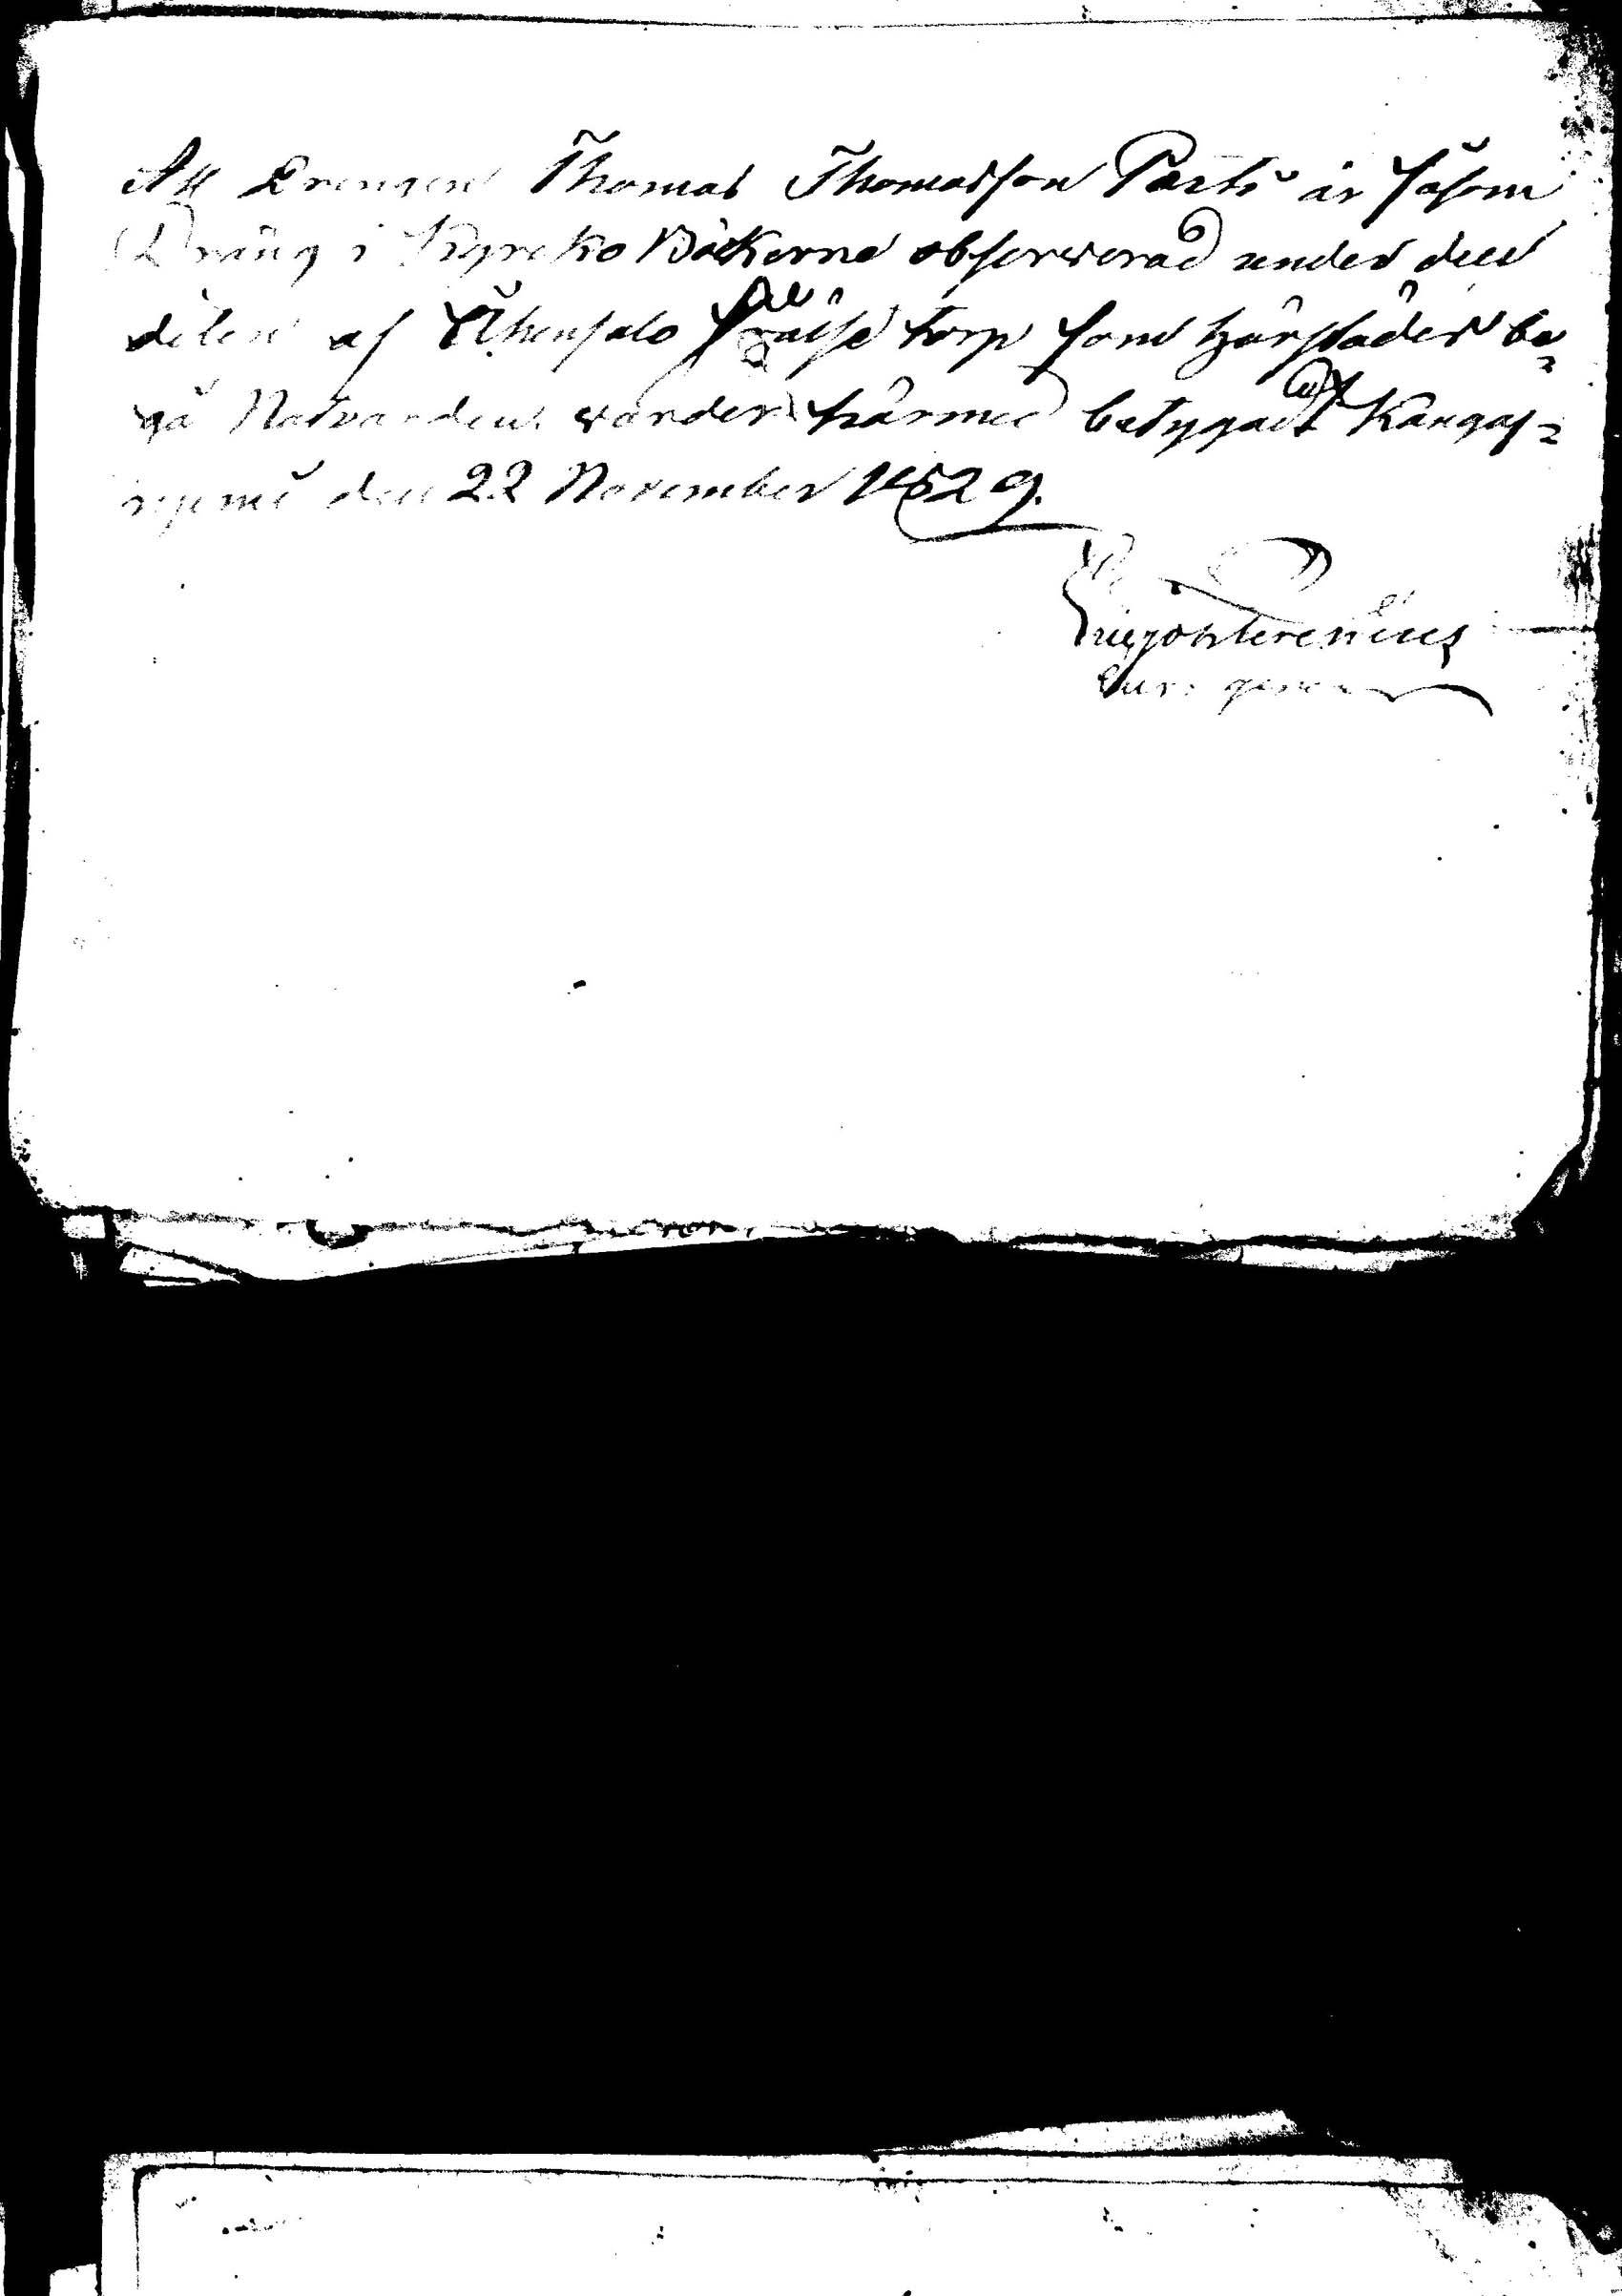 Att Drengen Thomas Thomasson Parts är såsom
Dräng i Kyrcko Böckerne obserwerad under den
delen af frälse torp som härstädes be=
gå Natvarden warder härmed betygadt Kangas=
niemi den 22 November 1829.